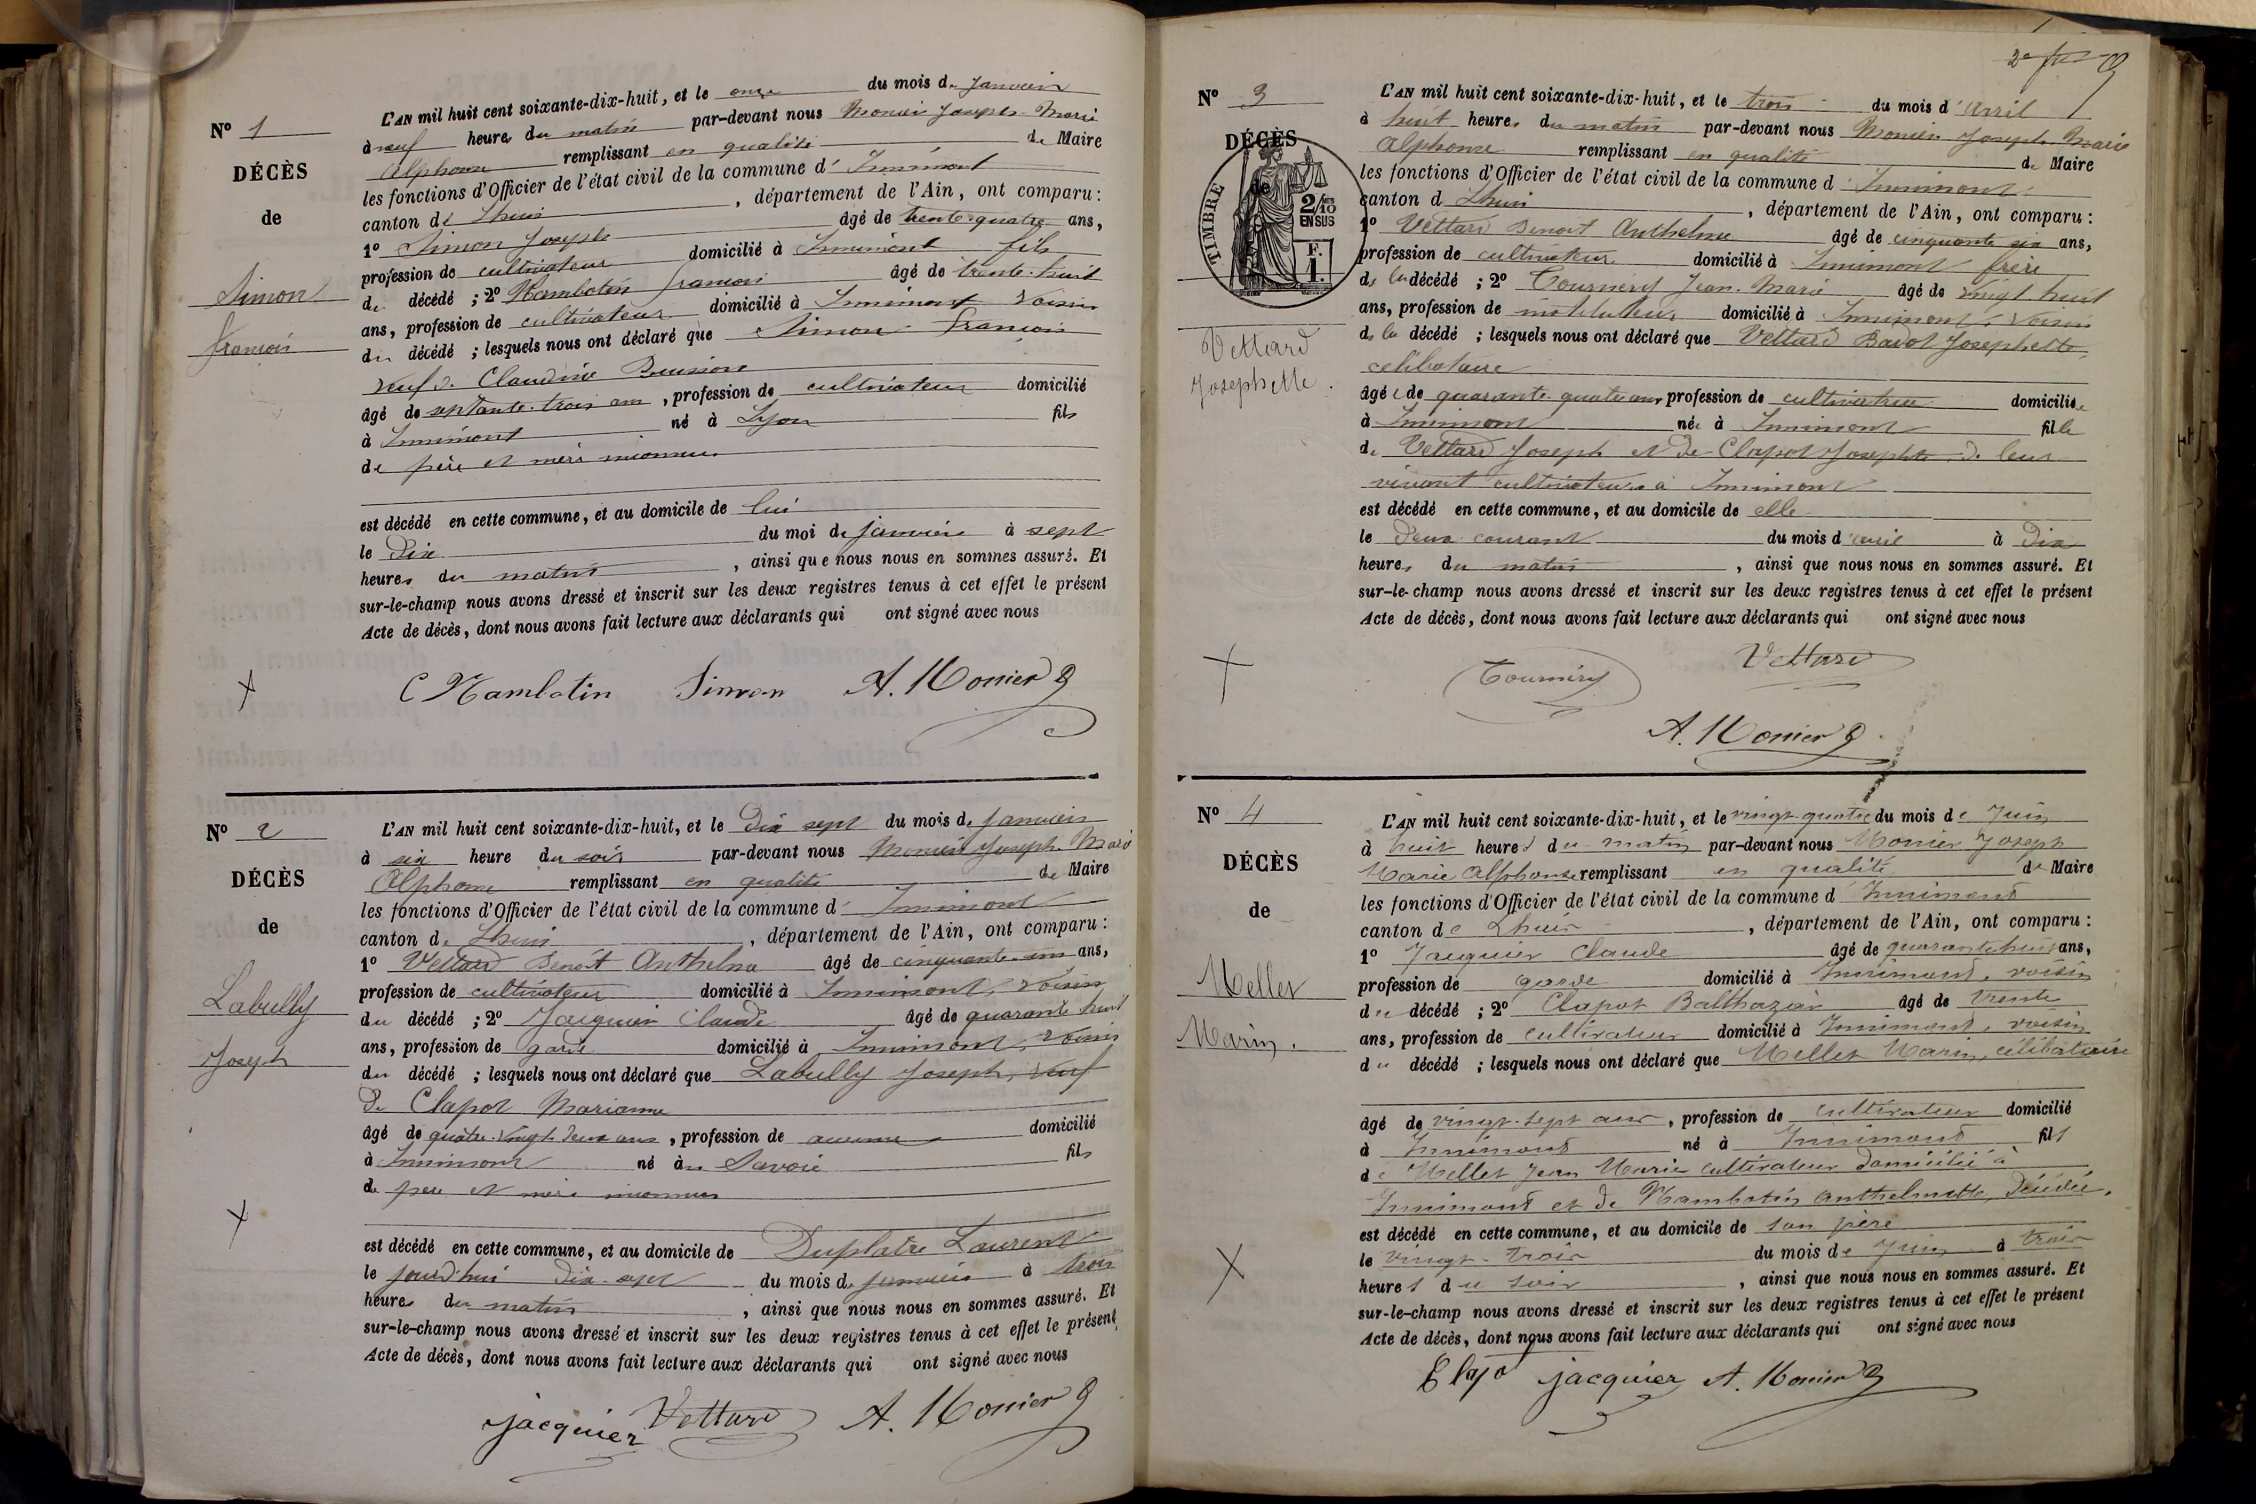 N° 1
DÉCÈS
de
Simon
françois
L'AN mil huit cent soixante-dix-huit, et le onze du mois de Janvier
à neuf heures du matin par-devant nous Monier Joseph Marie
Alphonse remplissant en qualité de Maire
les fonctions d'Officier de l'état civil de la commune d' Innimont
canton de Lhuis, département de l'Ain, ont comparu :
1° Simon Joseph âgé de trente-quatre ans,
profession de cultivateur domicilié à Innimont fils
du décédé ; 2° Nambotin françois âgé de trente-huit
ans, profession de cultivateur domicilié à Innimont voisin
du décédé ; lesquels nous ont déclaré que Simon françois
veuf de Claudine Buisson
âgé de septante-trois ans, profession de cultivateur domicilié
à Innimont né à Lyon fils
de père et mère inconnus
est décédé en cette commune, et au domicile de lui
le dix du moi de janvier à sept
heures du matin, ainsi que nous nous en sommes assuré. Et
sur-le-champ nous avons dressé et inscrit sur les deux registres tenus à cet effet le présent
Acte de décès, dont nous avons fait lecture aux déclarants qui ont signé avec nous
C Nambotin Simon A. Monier
N° 2
DÉCÈS
de
Labully
Joseph
L'AN mil huit cent soixante-dix-huit, et le Dix sept du mois de janvier
à six heure du soir par-devant nous Monier Joseph Marie
Alphonse remplissant en qualité de Maire
les fonctions d'Officier de l'état civil de la commune d' Innimont
canton de Lhuis, département de l'Ain, ont comparu :
1° Vettard Benoît Anthelme âgé de cinquante-six ans,
profession de cultivateur domicilié à Innimont, voisin
du décédé ; 2° Jacquier Claude âgé de quarante huit
ans, profession de garde domicilié à Innimont, voisin
du décédé ; lesquels nous ont déclaré que Labully Joseph, veuf
de Clapot Marianne
âgé de quatre-vingt-deux ans, profession de aucune domicilié
à Innimont né à en Savoie fils
de père et mère inconnus
est décédé en cette commune, et au domicile de Duplatre Laurent
le jourd'hui dix-sept du mois de janvier à trois
heures du matin, ainsi que nous nous en sommes assuré. Et
sur-le-champ nous avons dressé et inscrit sur les deux registres tenus à cet effet le présent
Acte de décès, dont nous avons fait lecture aux déclarants qui ont signé avec nous
jacquier Vettard A. Monier
N° 3
DÉCÈS
de
TIMBRE
2/10
EN SUS
F.
1.
Vettard
Josephette.
L'AN mil huit cent soixante-dix-huit, et le trois du mois d'avril
à huit heures du matin par-devant nous Monier Joseph Marie
Alphonse remplissant en qualité de Maire
les fonctions d'Officier de l'état civil de la commune d' Innimont
canton d Lhuis, département de l'Ain, ont comparu :
1° Vettard Benoit Anthelme âgé de cinquante six ans,
profession de cultivateur domicilié à Innimont frère
de la décédé ; 2° Tournéry Jean-Marie âgé de vingt huit
ans, profession de instituteur domicilié à Innimont, voisin
de la décédé ; lesquels nous ont déclaré que Vettard Badot Josephette,
célibataire
âgée de quarante-quatre ans profession de cultivatrice domiciliée
à Innimont née à Innimont fille
de Vettard Joseph et de Clapot Josephte, de leur
vivant cultivateurs à Innimont
est décédé en cette commune, et au domicile de elle
le deux courant du mois d'avril à dix
heures du matin, ainsi que nous nous en sommes assuré. Et
sur-le-champ nous avons dressé et inscrit sur les deux registres tenus à cet effet le présent
Acte de décès, dont nous avons fait lecture aux déclarants qui ont signé avec nous
Tournéry Vettard
A. Monier
N° 4
DÉCÈS
de
Mellet
Marin.
L'AN mil huit cent soixante-dix-huit, et le vingt-quatre du mois de Juin
à huit heures du matin par-devant nous Monier Joseph
Marie Alphonse remplissant en qualité de Maire
les fonctions d'Officier de l'état civil de la commune d' Innimont
canton de Lhuis, département de l'Ain, ont comparu :
1° Jacquier Claude âgé de quarante huit ans,
profession de garde domicilié à Innimont, voisin
du décédé ; 2° Clapot Balthazar âgé de trente
ans, profession de cultivateur domicilié à Innimont, voisin
du décédé ; lesquels nous ont déclaré que Mellet Marin, célibataire
âgé de vingt-sept ans, profession de cultivateur domicilié
à Innimont né à Innimont fils
de Mellet Jean Marie cultivateur domicilié à
Innimont et de Nambotin Anthelmette, décédée.
est décédé en cette commune, et au domicile de son père
le vingt-trois du mois de Juin à trois
heures du soir, ainsi que nous nous en sommes assuré. Et
sur-le-champ nous avons dressé et inscrit sur les deux registres tenus à cet effet le présent
Acte de décès, dont nous avons fait lecture aux déclarants qui ont signé avec nous
jacquier A. Monier